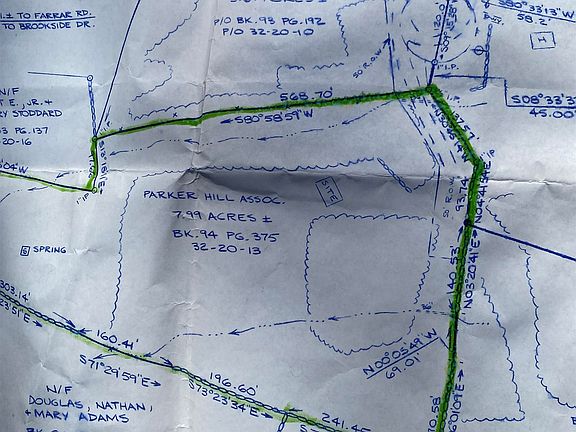 .± TO FARRAR RD.
TO BROOKSIDE DR.
P/O BK.93 PG.192
P/O 32-20-10
S80°33'13"W
58.2'
H
50' R.O.W.
I.P.
N/F
T E., JR. &
RY STODDARD
53 PG.137
-20-16
568.70'
S80°58'59"W
S08°33'3
45.00'
137.57
04"W
I.P.
PARKER HILL ASSOC.
7.99 ACRES ±
BK.94 PG.375
32-20-13
SITE
50' R.O.W.
93.74'
S SPRING
140.53'
N03°20'41"E
303.14'
23'51"E
160.41'
S71°29'59"E
196.60'
S73°23'34"E
241.45'
N00°05'49"W
69.01'
N/F
DOUGLAS, NATHAN,
& MARY ADAMS